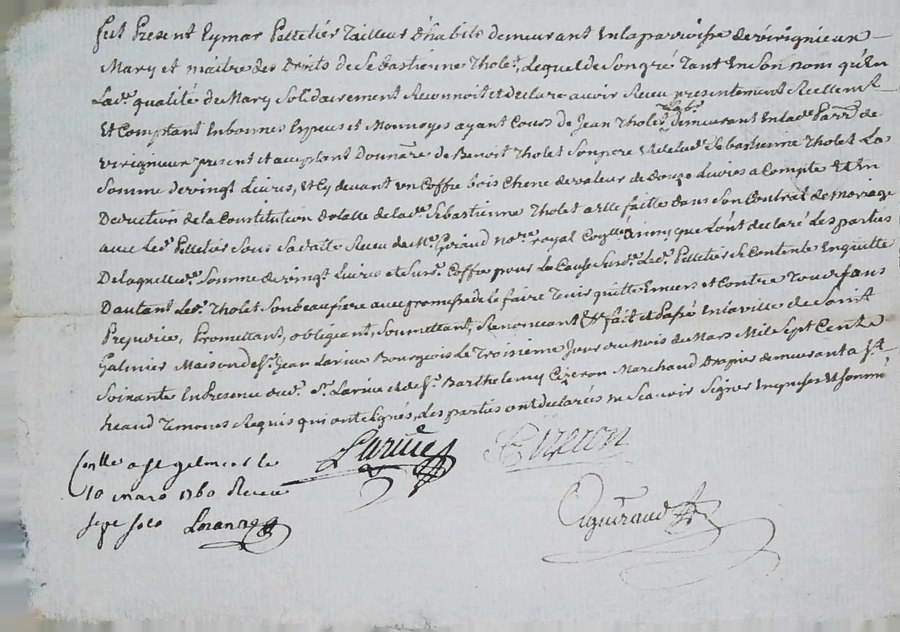 fut Present Eymar Pelletier Tailleur d'habits demeurant En la parroisse de virignieux
Mary et maitre des Droits de Sebastienne Tholet, Lequel de Son gré Tant En Son nom qu'En
Lad.e qualité de Mary Solidairement Reconnoit et declare avoir Receu presentement Reellemt
Et Comptant En bonnes Especes et Monnoyes ayant Cours de Jean Tholet Lab.r demeurant En lad.e Parr.e de
virigneux present et acceptant Donn.re de Benoit Tholet Son pere Et de lad.e Sebastienne Tholet La
Somme de vingt Livres, et Cy devant un Coffre bois Chene de valeur de Douze Livres a Compte Et En
Deduction de la Constitution dotalle de lad.e Sebastienne Tholet a Elle faitte dans Son Contrat de mariage
avec Led.t Pelletier Sous Sa datte Receu de M.e Giraud no.re royal ainsy que L'ont declaré Les parties
De laquelle Somme de vingt Livres et Coffre pour La Cause Led.t Pelletier Se Contente En quitte
D'autant Led.t Tholet Son beaufrere avec promesse de le faire Tenir quitte Envers et Contre Tous fans
Prejudice, Promettant, obligeant, Soumettant, Renoncant &c fait et Passé En la ville de Saint
Galmier Maison de S.r Jean Larive Bourgeois Le Troisieme Jour du Mois de Mars Mil Sept Cent
Soixante En Presence dud.t S.r Larive et de S.r Barthelemy Cizeron Marchand Drapier demeurant a S.t
heand Temoins Requis qui ont Signés, des parties ont declarées ne Scavoir Signer Enquises Et Sommé
Larive Cizeron
Con.lle a S.t gelmier le
10 mars 1760 Receu
Sept sols
Aguiraud